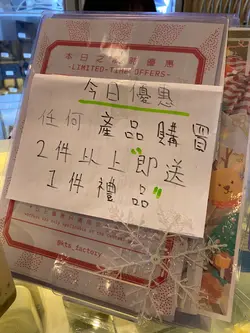 本日之限時優惠
-LIMITED-TIME OFFERS-
今日優惠
任何產品購買
2件以上"即送
1件禮品"
@mts_factory